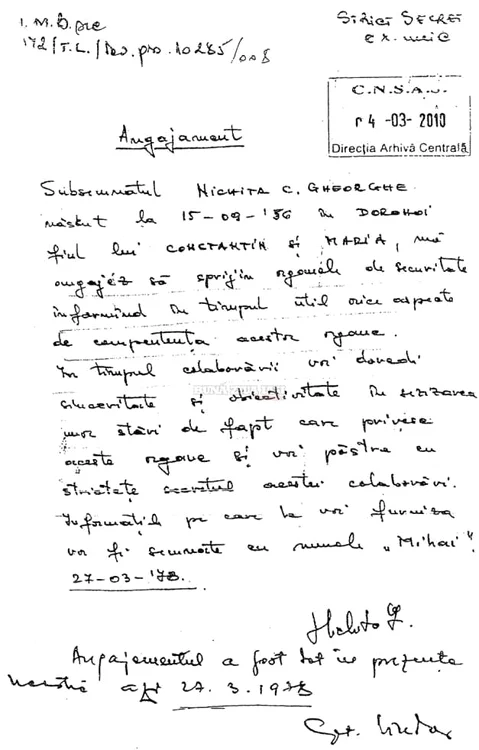 I. M. B. pre
172/T.L./Dos. pro. 10285/008
STRICT SECRET
ex. unic
C.N.S.A.S.
04 -03- 2010
Direcția Arhivă Centrală
Angajament
Subsemnatul NICHITA C. GHEORGHE
născut la 15-09-'56 în DOROHOI
fiul lui CONSTANTIN și MARIA, mă
angajéz să sprijin organele de securitate
informînd în timpul util orice aspecte
de competența acestor organe.
În timpul colaborării voi dovedi
sinceritate și obiectivitate în sesizarea
unor stări de fapt care privesc
aceste organe și voi păstra cu
strictețe secretul acestei colaborări.
Informațiile pe care le voi furniza
vor fi semnate cu numele „Mihai".
27-03-'78.
Angajamentul a fost dat în prezența
noastră azi 27. 3. 1978